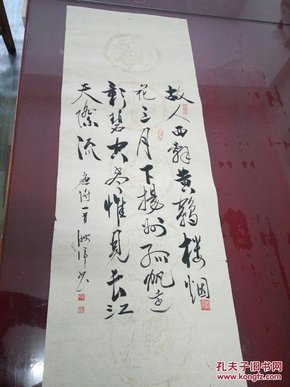 故人西辞黄鹤楼烟
花三月下扬州孤帆远
影碧空尽惟见长江
天际流 唐诗一首
孔夫子旧书网